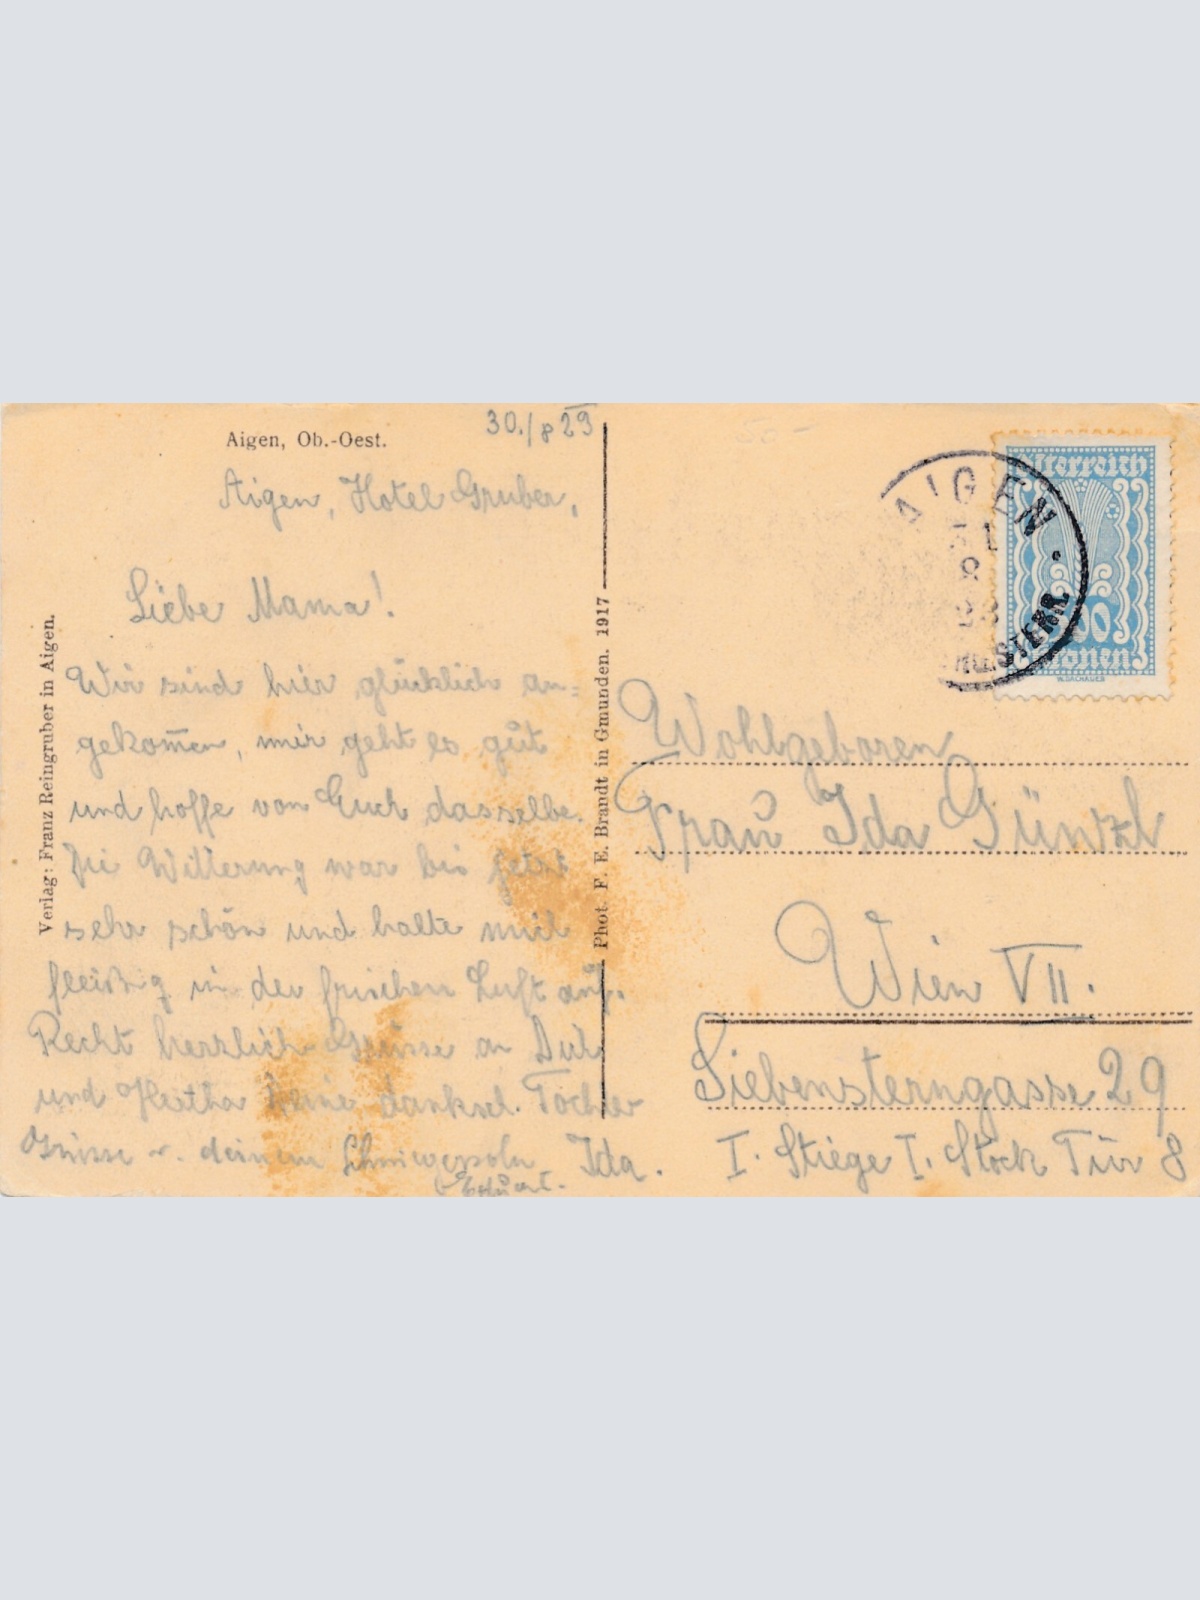 Aigen, Ob.-Oest.
30./8 23
Aigen, Hotel Gruber,
Liebe Mama!
Wir sind hier glücklich an=
gekom̄en, mir geht es gut
und hoffe von Euch dasselbe.
Die Witterung war bis jetzt
sehr schön und halte mich
fleißig in der frischen Luft auf.
Recht herzlich Grüsse an Dich
und Hertha Deine dankb. Tochter
Ida.
Grüsse v. deinem Schwiegersohn
Eduard.
Verlag: Franz Reingruber in Aigen.
Phot. F. E. Brandt in Gmunden. 1917
AIGEN
Österreich
Kronen
W.DACHAUER
Wohlgeboren
Frau Ida Günzl
Wien VII.
Siebensterngasse 29
I. Stiege I. Stock Tür 8